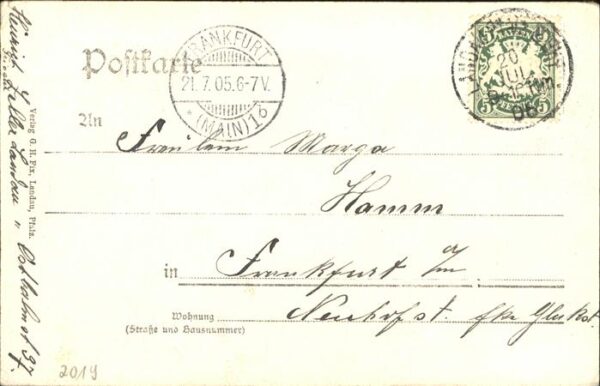 Postkarte
FRANKFURT
21.7.05.6-7V.
* (MAIN) 16
20
JUL
05
5 5
An
Fräulein Marga
Hamm
in Frankfurt a/m
Wohnung
(Straße und Hausnummer)
Neuhofst.
Verlag G. H. Fix, Landau, Pfalz.
Heinrich Landau
37
2019